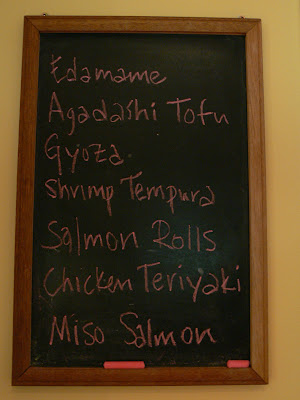 Edamame
Agadashi Tofu
Gyoza
Shrimp Tempura
Salmon Rolls
Chicken Teriyaki
Miso Salmon